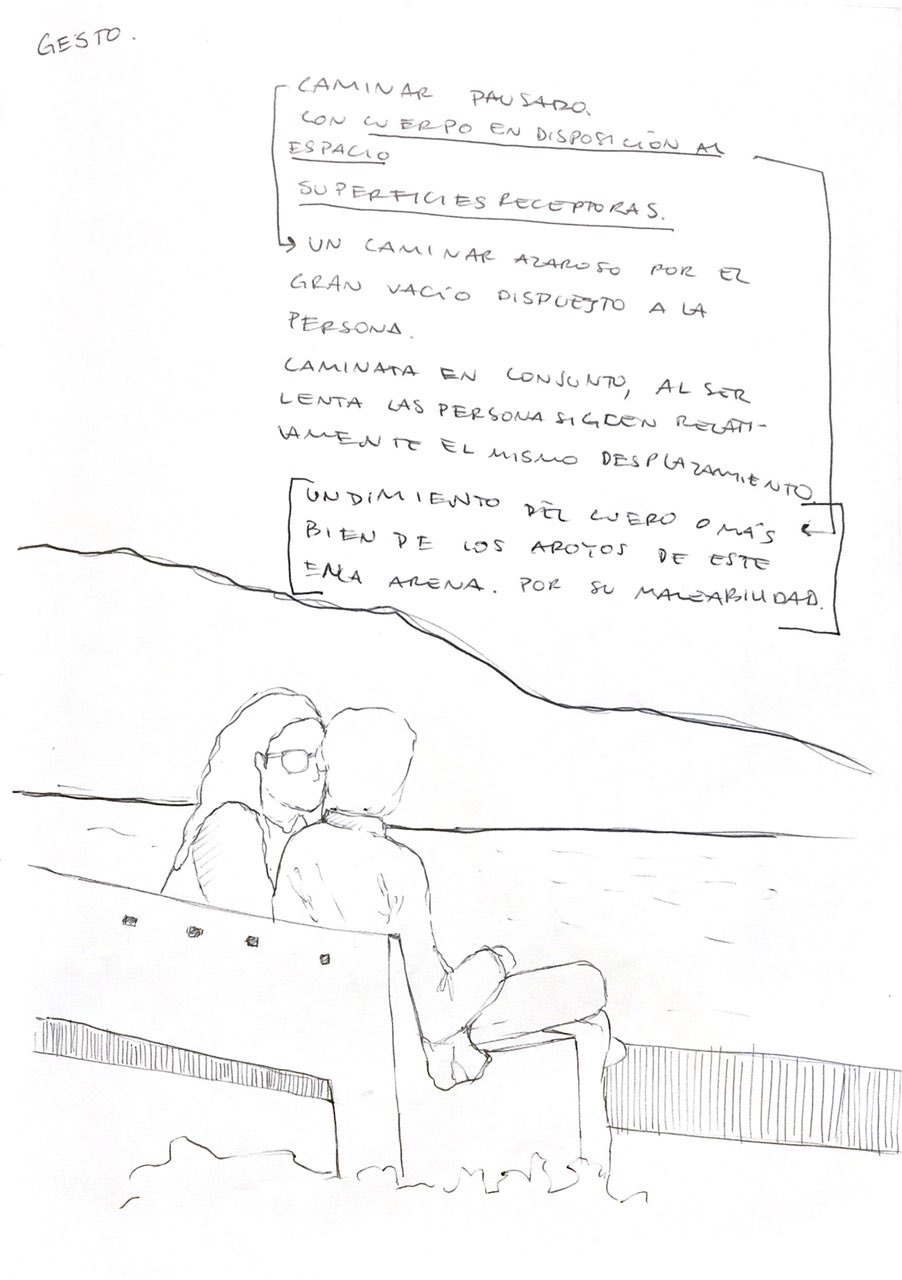 GESTO.
CAMINAR PAUSADO.
CON CUERPO EN DISPOSICIÓN AL
ESPACIO
SUPERFICIES RECEPTORAS.
UN CAMINAR AZAROSO POR EL
GRAN VACÍO DISPUESTO A LA
PERSONA.
CAMINATA EN CONJUNTO, AL SER
LENTA LAS PERSONA SIGUEN RELATI-
VAMENTE EL MISMO DESPLAZAMIENTO.
UNDIMIENTO DEL CUERO O MÁS
BIEN DE LOS APOYOS DE ESTE
EN LA ARENA. POR SU MALEABILIDAD.